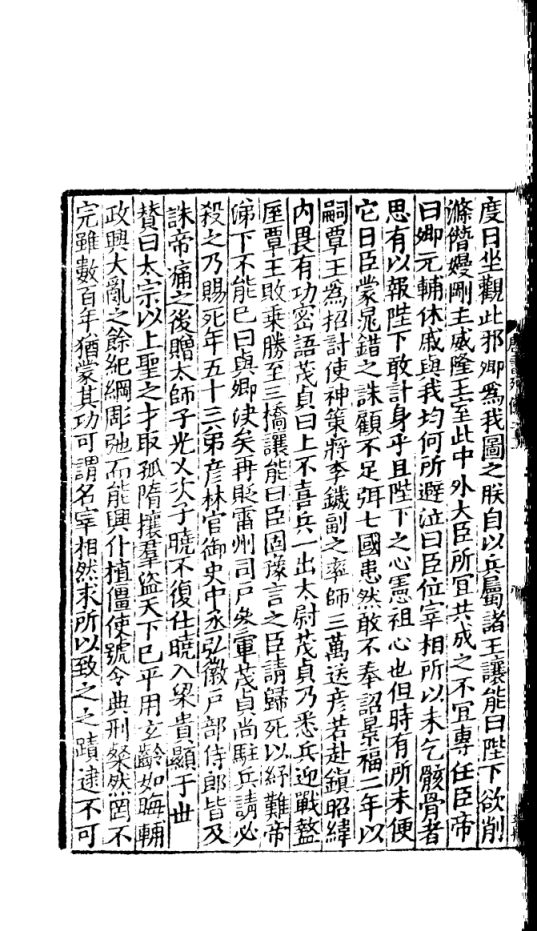 度日坐觀此邪卿爲我圖之朕自以兵屬諸王讓能曰陛下欲削
滌僭嫚剛主威隆王至此中外大臣所宜共成之不宜專任臣帝
曰卿元輔休戚與我均何所避泣曰臣位宰相所以未乞骸骨者
思有以報陛下敢計身乎且陛下之心憲祖心也但時有所未便
它日臣蒙晁錯之誅顧不足弭七國患然敢不奉詔景福二年以
嗣覃王爲招討使神策將李鐬副之率師三萬送彦若赴鎮昭緯
内畏有功密語茂貞曰上不喜兵一出太尉茂貞乃悉兵迎戰盩
厔覃王敗乗勝至三橋讓能曰臣固豫言之臣請歸死以紓難帝
涕下不能巳曰與卿決矣再貶雷州司戶參軍茂貞尚駐兵請必
殺之乃賜死年五十三弟彦林官御史中丞弘徽戸部侍郎皆及
誅帝痛之後贈太師子光乂次子曉不復仕曉入梁貴顯于世
賛曰太宗以上聖之才取孤隋攘羣盜天下巳平用玄齡如晦輔
政興大亂之餘紀綱彫弛而能興仆植僵使號令典刑粲然罔不
完雖數百年猶蒙其功可謂名宰相然求所以致之之蹟逮不可